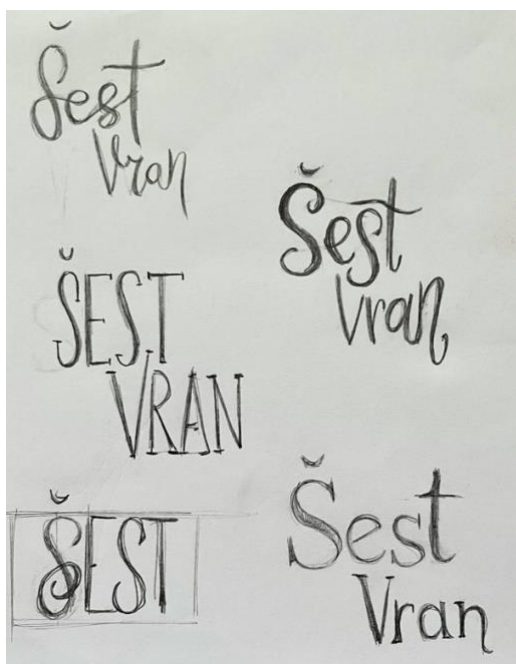 Šest
Vran
Šest
Vran
ŠEST
VRAN
ŠEST
Šest
Vran